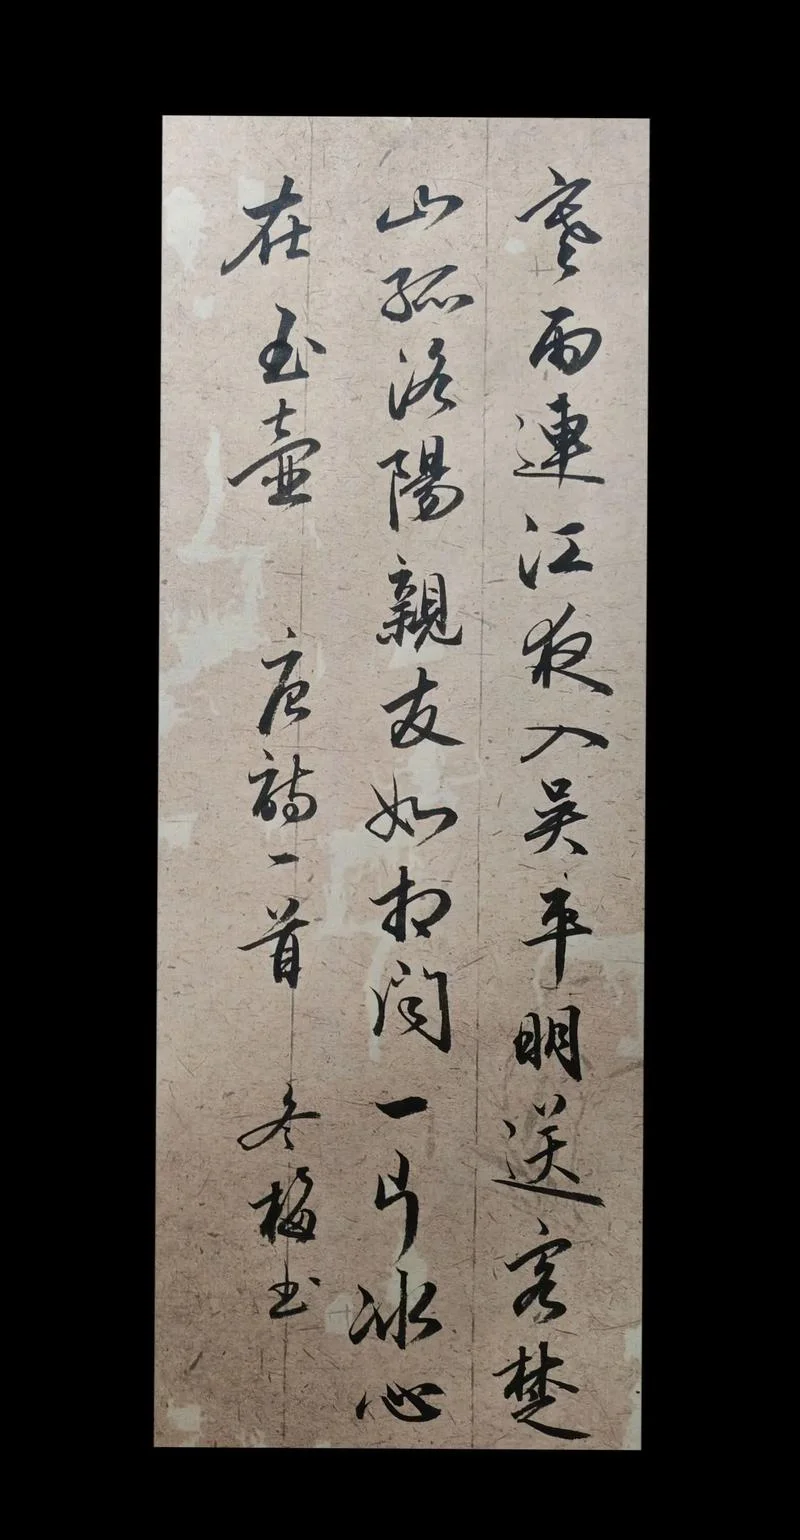 寒雨連江夜入吳平明送客楚
山孤洛陽親友如相問一片冰心
在玉壺 唐詩一首 冬梅书